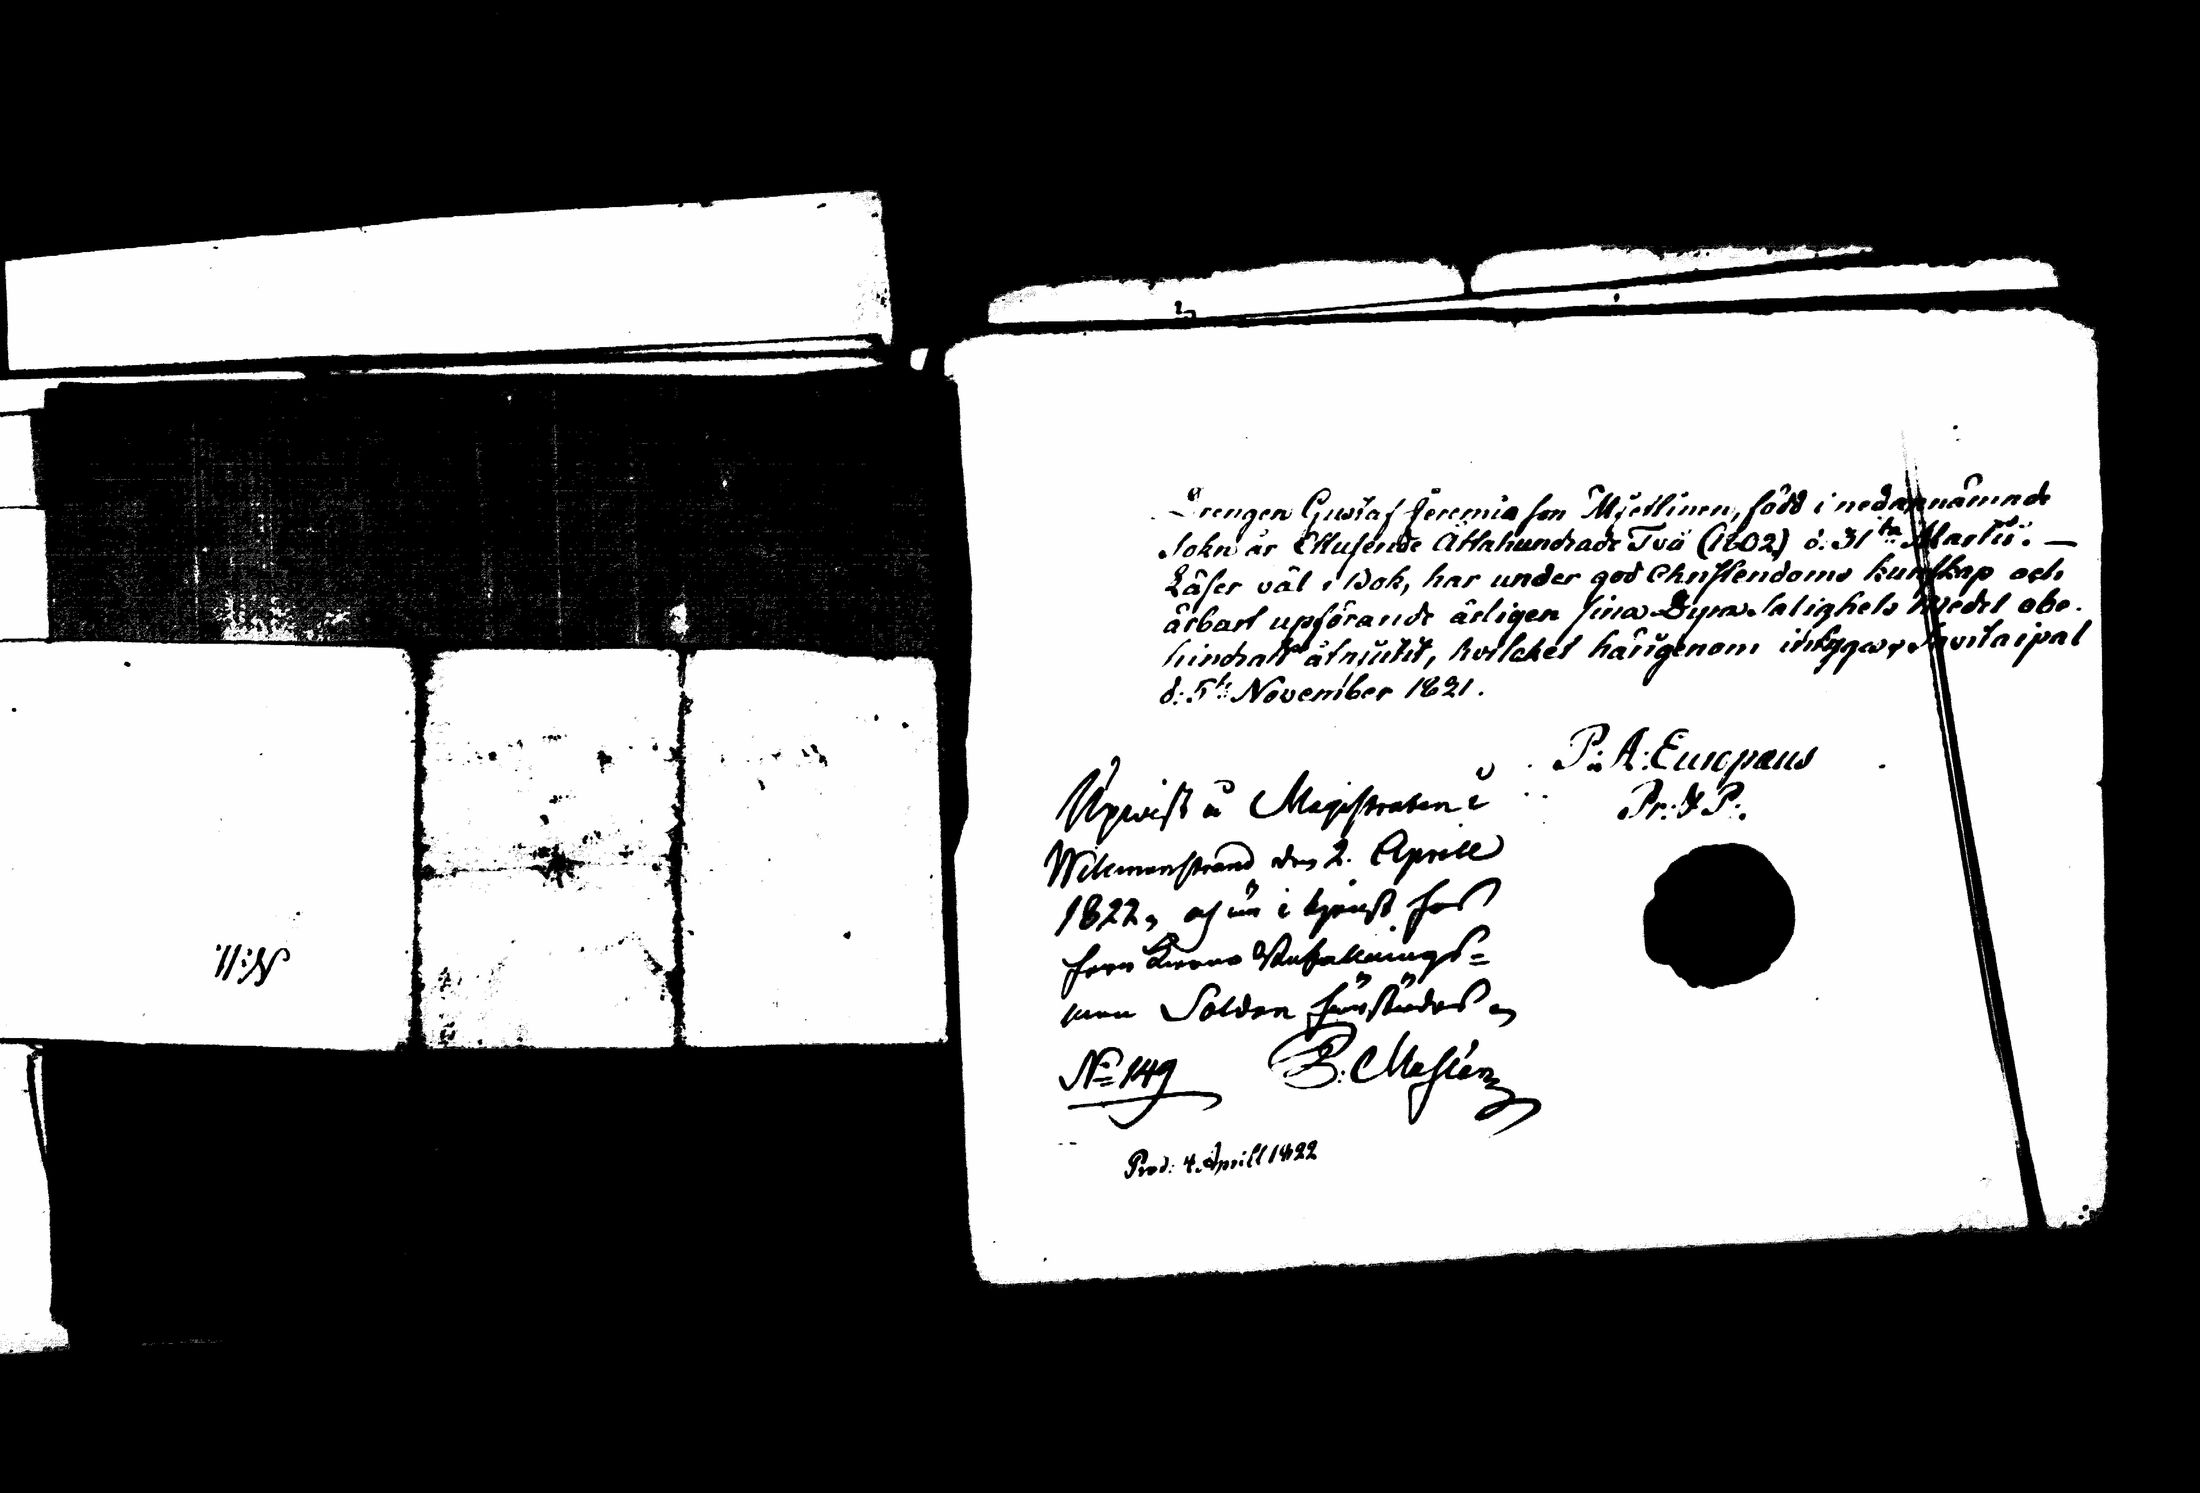 Drengen Gustaf Jeremiæ son Mjettinen, född i nedannämnde
Sokn år Ettusende Åttahundrade Två (1802) d. 31ta Martii. —
Läser väl i Bok, har under god Christendoms kunskap och
ärbart upförande årligen sina Dyra Salighets Medel obe-
hindradt åtnjutit, hvilcket härigenom intygar Savitaipal
d: 5te November 1821.
P: A: Europæus
Pr: & P:
Upwist å Magistraten i
Wilmanstrand den 2. Aprill
1822, och är i tjenst hos
herr Krono Befallnings=
man
N:o 149
Prod: 4. Aprill 1822
N: 11.